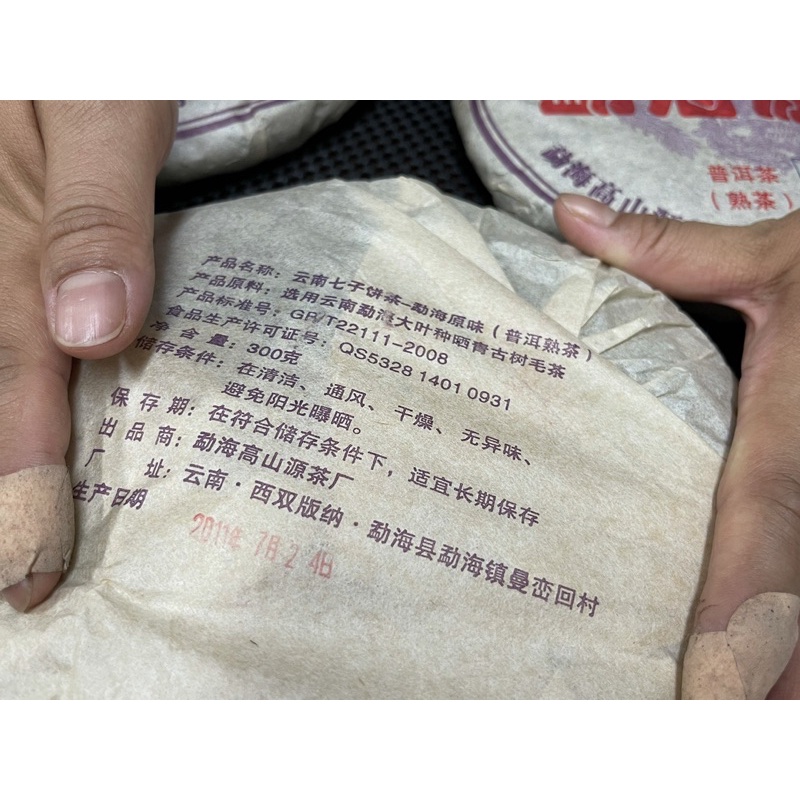 勐海高山
普洱茶
（熟茶）
产品名称：云南七子饼茶-勐海原味（普洱熟茶）
产品原料：选用云南勐海大叶种晒青古树毛茶
产品标准号：GB/T22111-2008
食品生产许可证号：QS5328 1401 0931
净含量：300克
储存条件：在清洁、通风、干燥、无异味、
避免阳光曝晒。
保存期：在符合储存条件下，适宜长期保存
出品商：勐海高山源茶厂
厂址：云南·西双版纳·勐海县勐海镇曼峦回村
生产日期
2011年 7月 2 4日